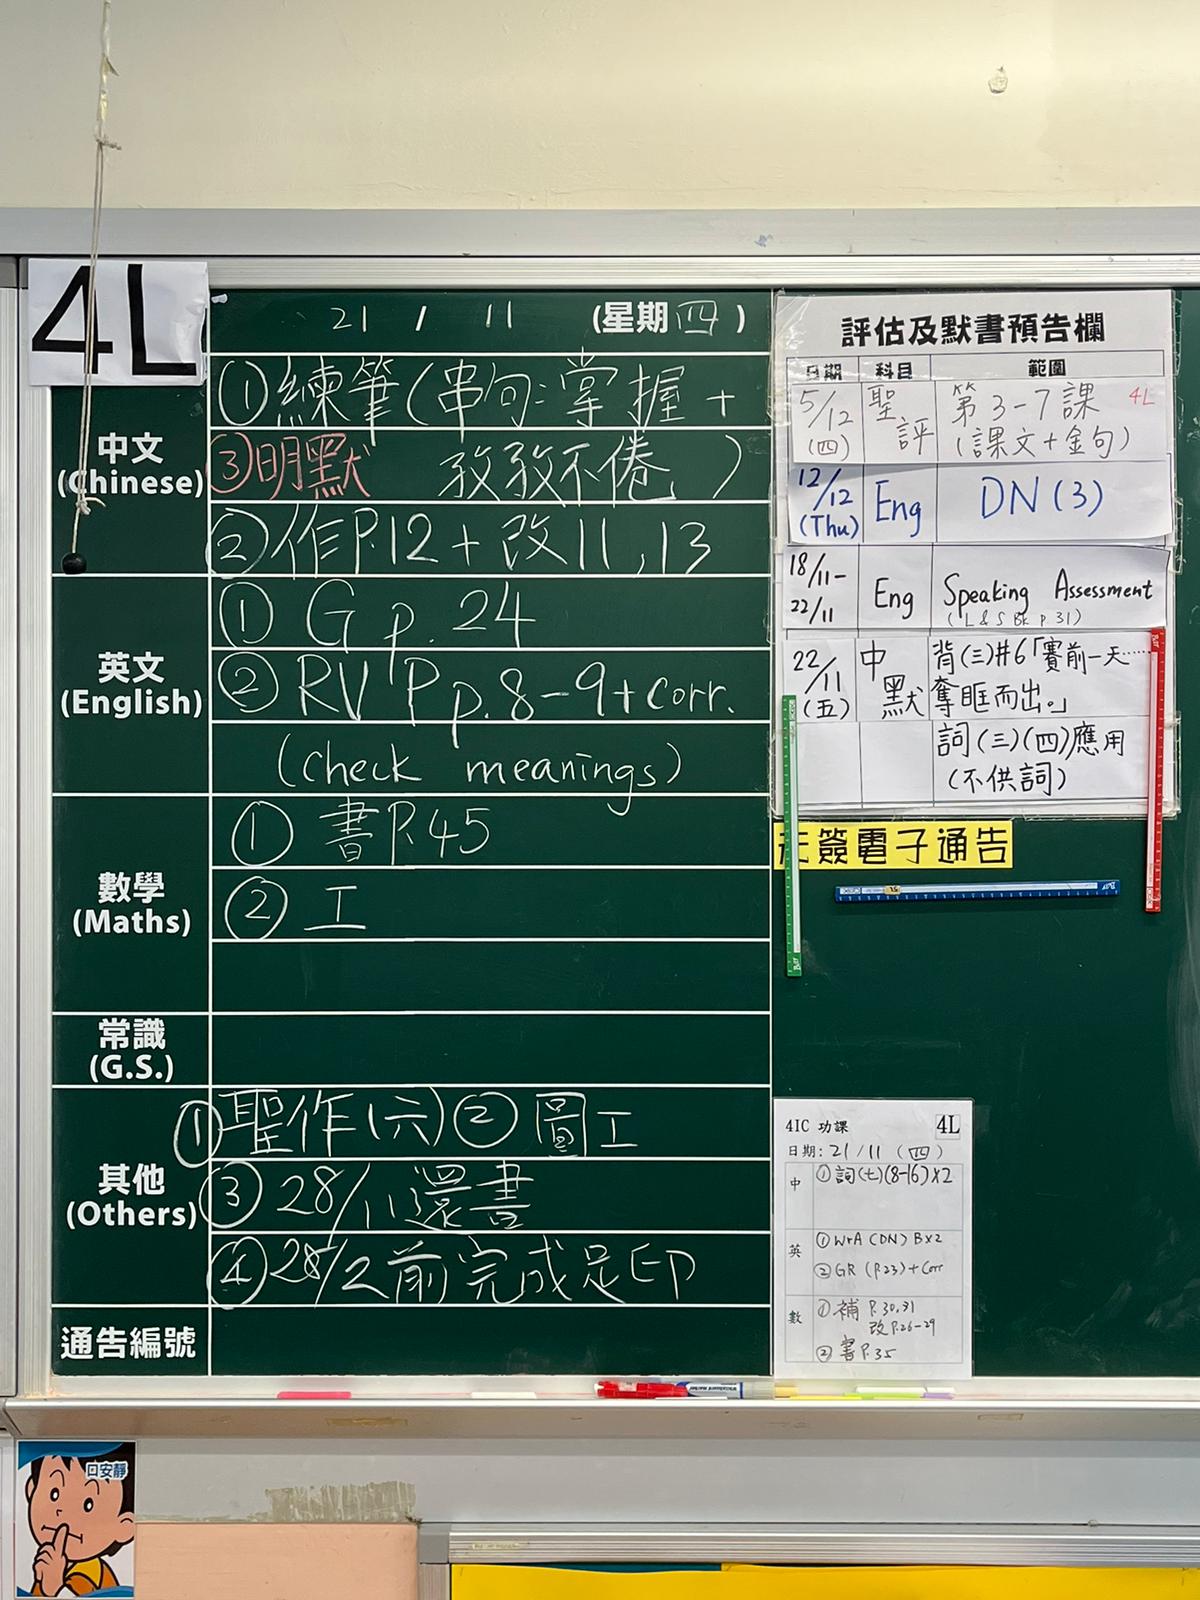 4L
21 / 11 (星期四)
中文
(Chinese)
①練筆(串句:掌握+
③明默 孜孜不倦)
②作P.12+改11,13
英文
(English)
① G p. 24
② RVP p.8-9+corr.
(check meanings)
數學
(Maths)
① 書P.45
② 工
常識
(G.S.)
其他
(Others)
①聖作(六)②圖工
③28/11還書
④28/2前完成足印
通告編號
評估及默書預告欄
日期 科目 範圍
5/12 (四) 聖評 第3-7課 4L
(課文+金句)
12/12 (Thu) Eng DN(3)
18/11-22/11 Eng Speaking Assessment
(L&S Bk p 31)
22/11 (五) 中默 背(三)#6「賽前一天……
奪眶而出。」
詞(三)(四)應用
(不供詞)
簽電子通告
4IC 功課 4L
日期: 21/11 (四)
中 ①詞(七)(8-16)×2
英 ①WrA (DN) B×2
②GR (P.23)+Corr
數 ①補 P.30,31
改 P.26-29
②書P.35
口安靜